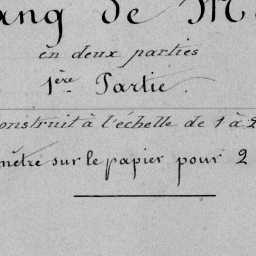 ang de M
en deux parties
1ère Partie.
onstruit à l'échelle de 1 à 2
mètre sur le papier pour 2